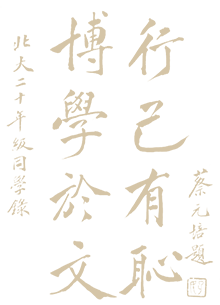 行己有恥
博學於文
北大二十年級同學錄
蔡元培題